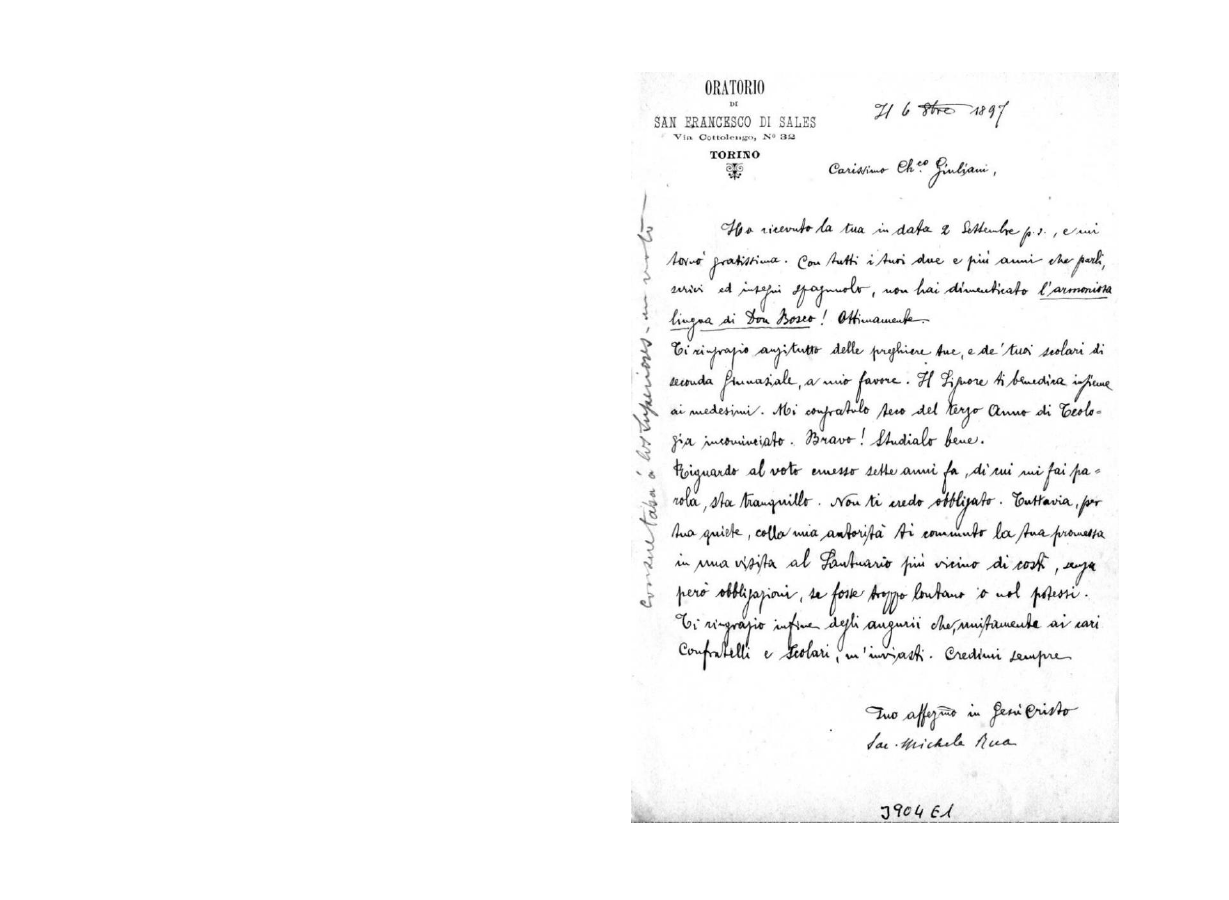 ORATORIO
DI
SAN FRANCESCO DI SALES
Via Cottolengo, Nº 32
TORINO
Il 6 8bre 1897
Carissimo Ch.co Giuliani,
Ho ricevuto la tua in data 2 Settembre p. p., e mi
tornò gratissima. Con tutti i tuoi due e più anni che parli,
scrivi ed insegni spagnuolo, non hai dimenticato l'armoniosa
lingua di Don Bosco! Ottimamente.
Ti ringrazio anzitutto delle preghiere tue, e de' tuoi scolari di
seconda Ginnasiale, a mio favore. Il Signore ti benedica insieme
ai medesimi. Mi congratulo teco del terzo Anno di Teolo-
gia incominciato. Bravo! Studialo bene.
Riguardo al voto emesso sette anni fa, di cui mi fai pa-
rola, sta tranquillo. Non ti credo obbligato. Tuttavia, per
tua quiete, colla mia autorità ti commuto la tua promessa
in una visita al Santuario più vicino di costì, senza
però obbligazioni, se fosse troppo lontano o nol potessi.
Ti ringrazio infine degli augurii che, unitamente ai cari
Confratelli e Scolari, m'inviasti. Credimi sempre
Tuo affezmo in Gesù Cristo
Sac. Michele Rua
á los Superiores - un voto
3904 E1